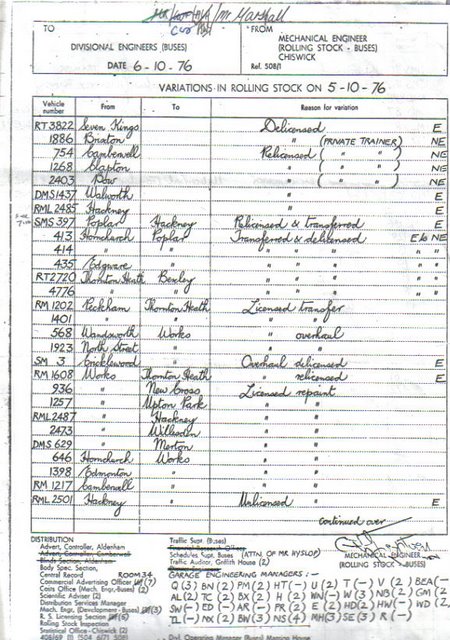 Mr Marshall
TO
DIVISIONAL ENGINEERS (BUSES)
DATE 6-10-76
FROM
MECHANICAL ENGINEER
(ROLLING STOCK - BUSES)
CHISWICK
Ref. 508/1
VARIATIONS IN ROLLING STOCK ON 5-10-76
Vehicle number From To Reason for variation
RT 3822 Seven Kings Delicensed E
1886 Brixton " (PRIVATE TRAINER) NE
754 Camberwell Relicensed ( " " ) NE
1268 Clapton " ( " " ) NE
2403 Bow " ( " " ) NE
DMS 1437 Walworth " E
RML 2485 Hackney " E
SMS 397 Poplar Hackney Relicensed & transferred E
413 Hornchurch Poplar Transferred & delicensed E to NE
414 " " " " " " "
435 Edgware " " " " " "
RT2720 Thornton Heath Bexley " " " " "
4776 " " " " " " "
RM 1202 Peckham Thornton Heath Licensed transfer
1401 " " " "
568 Wandsworth Works " overhaul
1923 North Street " " "
SM 3 Cricklewood " Overhaul delicensed E
RM 1608 Works Thornton Heath " relicensed E
936 " New Cross Licensed repaint
1257 " Upton Park " "
RML 2487 " Hackney " "
2473 " Willesden " "
DMS 629 " Merton " "
646 Hornchurch Works " "
1398 Edmonton " " "
RM 1217 Camberwell " " "
RML 2501 Hackney Unlicensed " E
continued over
DISTRIBUTION
Advert, Controller, Aldenham
Advert, Controller, Camberwell
Blinds Section, Aldenham
Body Spec. Section,
Central Record ROOM 34
Commercial Advertising Officer (7)
Costs Office (Mech. Engr-Buses)
Scientific Adviser (2)
Distribution Services Manager
Mech. Engr. (Development - Buses) (3)
R. S. Licensing Section (6)
Rolling Stock Inspection
Statistical Office - Chiswick (2)
Traffic Supt (Buses)
Schedules Supt, Buses (ATTN. OF MR HYSLOP)
Traffic Auditor, Griffith House (2)
MECHANICAL ENGINEER
(ROLLING STOCK - BUSES)
GARAGE ENGINEERING MANAGERS :-
Q (3) BN (2) PM (2) HT (-) U (2) T (-) V (2) BEA (-)
AL (2) TC (2) BX (2) H (2) WN (-) W (3) NB (2) GM (2
SW (-) ED (-) AR (-) PR (2) E (2) HD (2) HW (-) WD (2)
TL (-) NX (2) BW (3) NS (4) MH (3) SE (3) R (-)